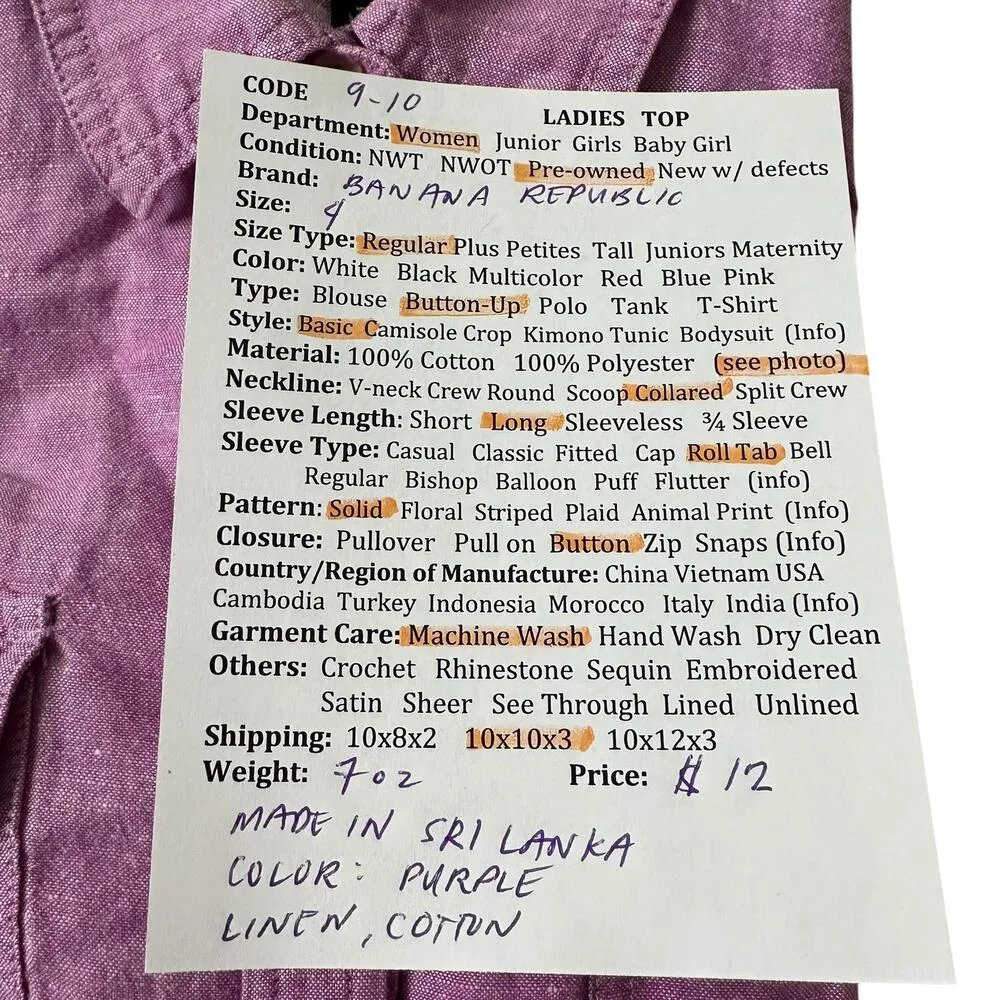 CODE 9-10
LADIES TOP
Department: Women Junior Girls Baby Girl
Condition: NWT NWOT Pre-owned New w/ defects
Brand: BANANA REPUBLIC
Size: 4
Size Type: Regular Plus Petites Tall Juniors Maternity
Color: White Black Multicolor Red Blue Pink
Type: Blouse Button-Up Polo Tank T-Shirt
Style: Basic Camisole Crop Kimono Tunic Bodysuit (Info)
Material: 100% Cotton 100% Polyester (see photo)
Neckline: V-neck Crew Round Scoop Collared Split Crew
Sleeve Length: Short Long Sleeveless ¾ Sleeve
Sleeve Type: Casual Classic Fitted Cap Roll Tab Bell
Regular Bishop Balloon Puff Flutter (info)
Pattern: Solid Floral Striped Plaid Animal Print (Info)
Closure: Pullover Pull on Button Zip Snaps (Info)
Country/Region of Manufacture: China Vietnam USA
Cambodia Turkey Indonesia Morocco Italy India (Info)
Garment Care: Machine Wash Hand Wash Dry Clean
Others: Crochet Rhinestone Sequin Embroidered
Satin Sheer See Through Lined Unlined
Shipping: 10x8x2 10x10x3 10x12x3
Weight: 7oz Price: $12
MADE IN SRI LANKA
COLOR: PURPLE
LINEN, COTTON